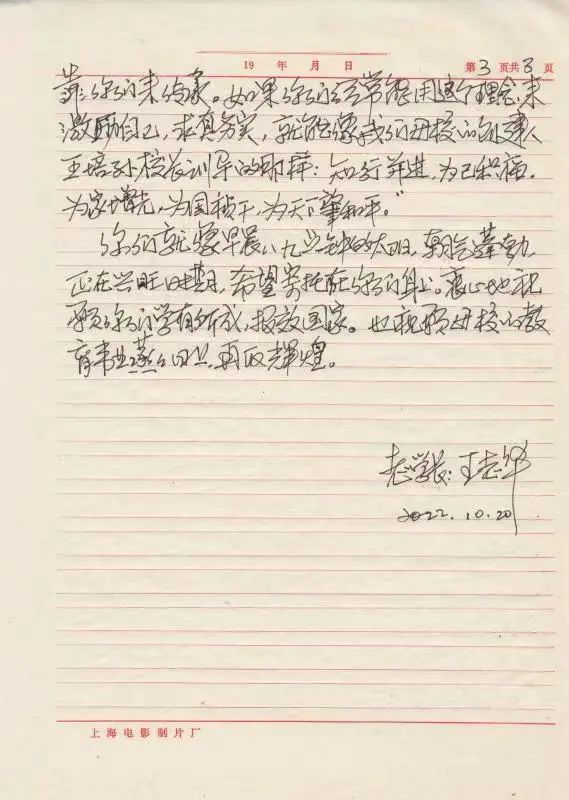 19 年 月 日 第3页共3页
靠你们来传承。如果你们经常能用这个理念来
激励自己，求真务实，就能像我们母校的创建人
王培孙校长训导的那样：知行并进，为己积福，
为家增光，为国桢干，为天下肇和平。"
你们就像早晨八九点钟的太阳，朝气蓬勃
正在兴旺时期，希望寄托在你们身上。衷心地祝
愿你们学有所成，报效国家。也祝愿母校的教
育事业蒸蒸日上，再区辉煌。
老学长：王志华
2022.10.20
上海电影制片厂